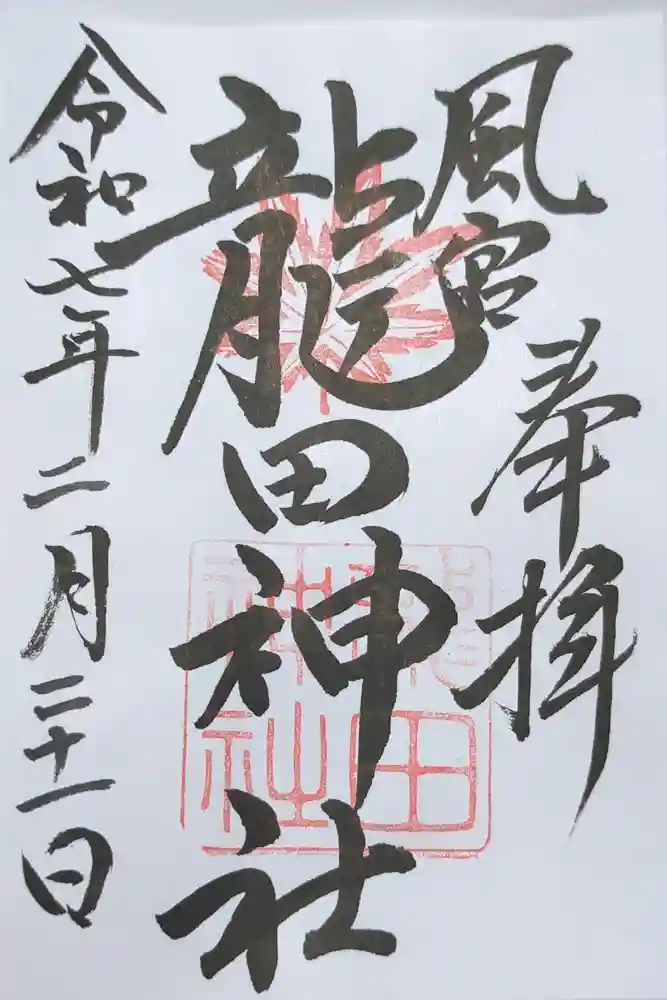 奉拝
風宮
龍田神社
令和七年二月二十一日
龍田
神社